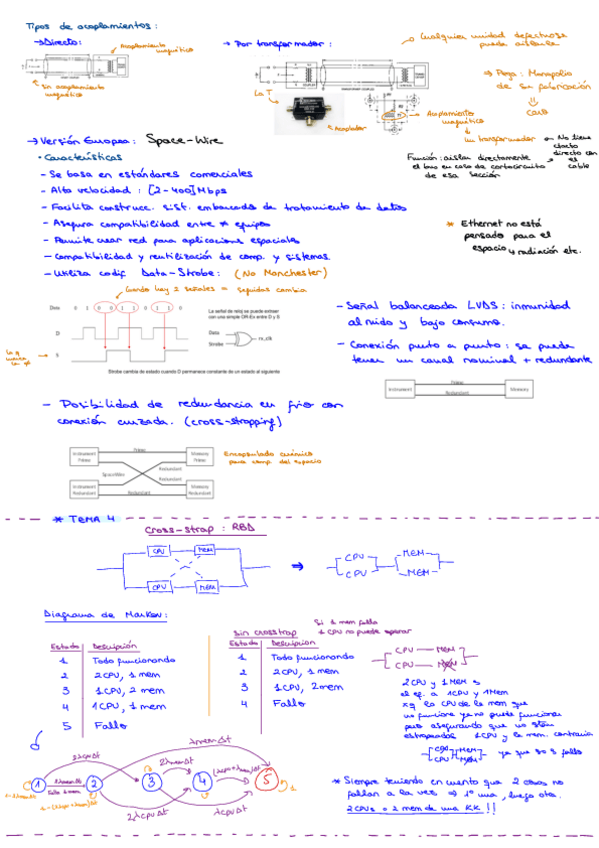 Tipos de acoplamientos:
→ Directo:
Acoplamiento magnético
Sin acoplamiento magnético
→ Por transformador:
La T
Acoplador
Cualquier unidad defectuosa puede aislarse
⇒ Pega: Monopolio de su fabricación
⇓
caro
Auplamiento magnético
un transformador → No tiene efecto directo con el cable
Función: aislan directamente el bus en caso de cortocircuito de esa sección
→ Versión Europea: Space-Wire
• Características
- Se basa en estándares comerciales
- Alta velocidad: [2-400] Mbps
- Facilita construcc. sist. embarcados de tratamiento de datos
- Asegura compatibilidad entre ≠ equipos
- Permite usar red para aplicaciones espaciales
- Compatibilidad y reutilización de comp. y sistemas
- Utiliza codif Data-Strobe: (No Manchester)
* Ethernet no está pensado para el espacio y radiación etc.
Cuando hay 2 señales = seguidas cambia
Data 0 1 0 0 1 1 0 1 1 0
D
S
La señal de reloj se puede extraer
con una simple OR-Ex entre D y S
Data
Strobe
rx_clk
Strobe cambia de estado cuando D permanece constante de un estado al siguiente
- Señal balanceada LVDS: inmunidad al ruido y bajo consumo.
- Conexión punto a punto: se puede tener un canal nominal + redundante
Instrument
Primary
Redundant
Memory
- Posibilidad de redundancia en frio con conexión cruzada. (cross-strapping)
Instrument Primary
Primary
Memory Primary
SpaceWire
Redundant
Redundant
Instrument Redundant
Redundant
Memory Redundant
Encapsulado cerámico para comp. del espacio
* TEMA 4
Cross-strap: RBD
CPU MEM
CPU MEM
⇒
CPU MEM
CPU MEM
Diagrama de Markov:
Estado Descripción
1 Todo funcionando
2 2CPU, 1 mem
3 1CPU, 2 mem
4 1CPU, 1 mem
5 Fallo
Sin crosstrap
Si 1 mem falla
1 CPU no puede operar
Estado Descripcion
1 Todo funcionando
2 2CPU, 1 mem
3 1CPU, 2mem
4 Fallo
CPU — MEM
CPU — MEM
2CPU y 1 MEM es
el eq. a 1CPU y 1 Mem
xq la CPU de la mem que
no funciona ya no puede funcionar
CPU MEM
CPU MEM
ya que no es fallo
1 2 3 4 5
2λcpuΔt
λmemΔt
2λmemΔt
2λcpuΔt
λcpuΔt
* Siempre teniendo en cuenta que 2 cosas no
fallan a la vez ⇒ 1º una, luego otra.
2 CPUs = 2 mem de una K.K. !!